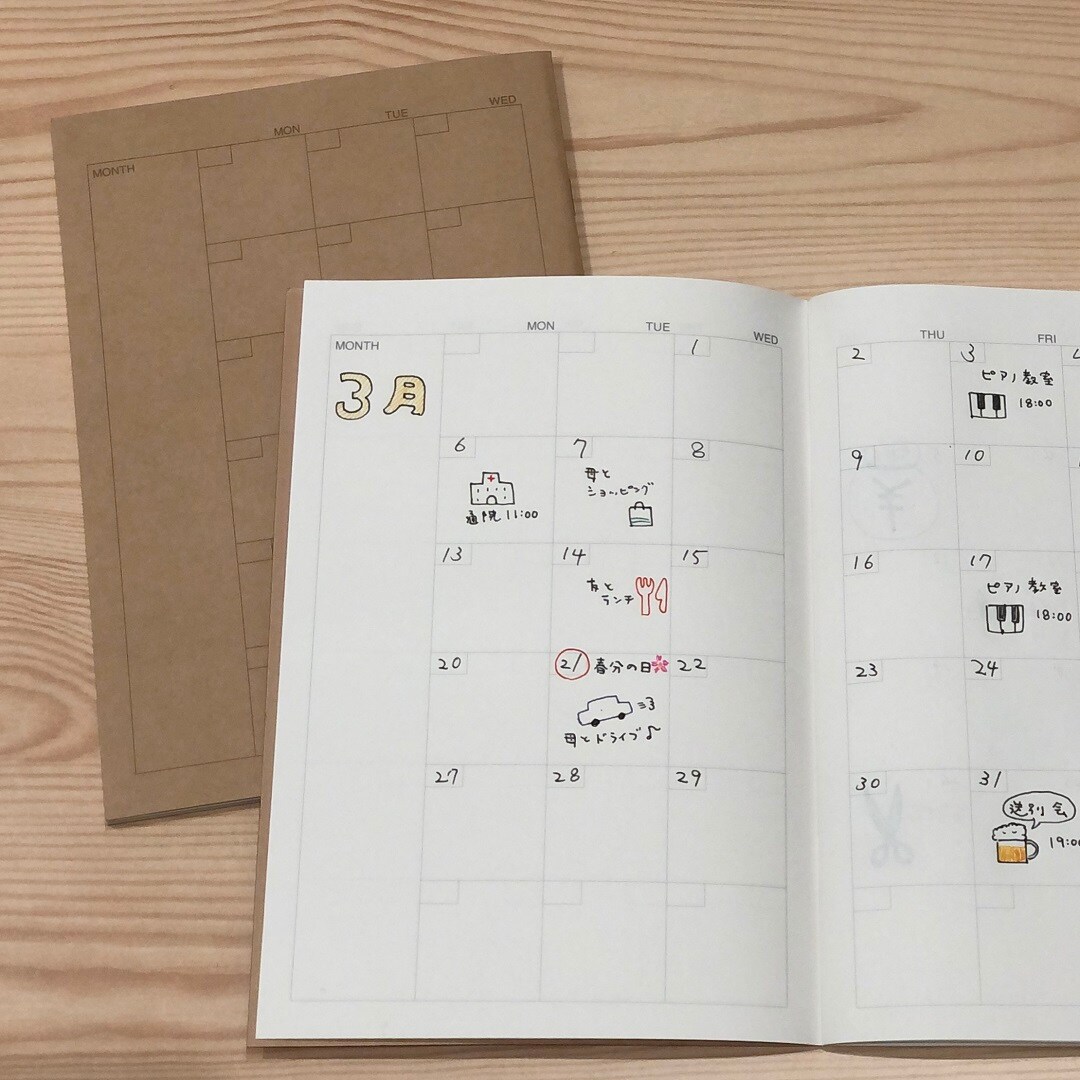 MON TUE WED
MONTH
MON TUE WED THU FRI
MONTH
3月
1 2 3
ピアノ教室
18:00
6 7 8 9 10
母と
ショッピング
通院 11:00
13 14 15 16 17
友と
ランチ
ピアノ教室
18:00
20 21 春分の日 22 23 24
母とドライブ♪
27 28 29 30 31
送別会
19:00